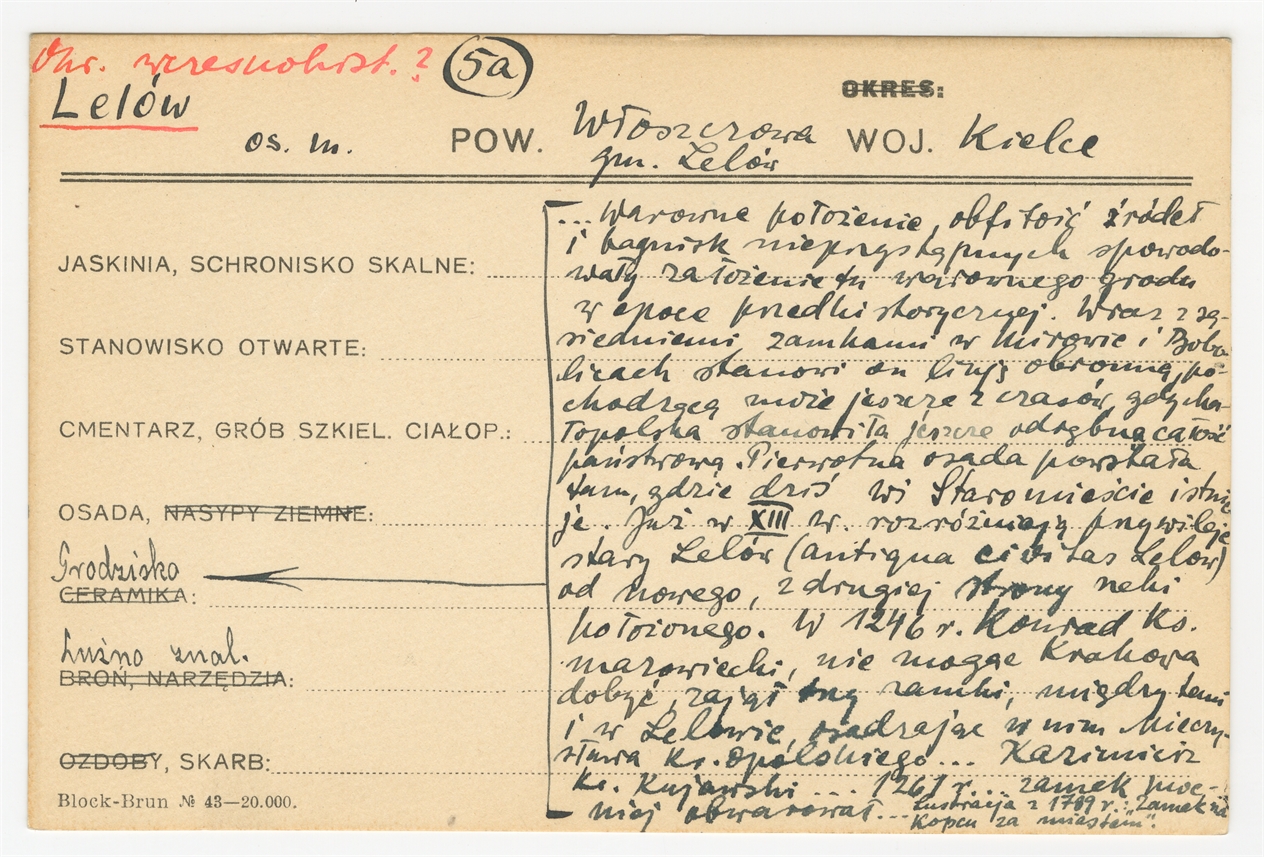 Okr. wczesnohist.? 5a
Lelów
OKRES:
os. m. POW. Włoszczowa WOJ. Kielce
gm. Lelów
JASKINIA, SCHRONISKO SKALNE:
STANOWISKO OTWARTE:
CMENTARZ, GRÓB SZKIEL. CIAŁOP.:
OSADA, NASYPY ZIEMNE:
Grodzisko
CERAMIKA:
Luźno znal.
BROŃ, NARZĘDZIA:
OZDOBY, SKARB:
Block-Brun № 43—20.000.
... Warowne położenie, obfitość źródeł
i bagnisk nieprzystępnych spowodo-
wały założenie tu warownego grodu
w epoce przedhistorycznej. Wraz z są-
siedniemi zamkami w Mirowie i Bobo-
licach stanowi on linję obronną, po-
chodzącą może jeszcze z czasów, gdy Ma-
łopolska stanowiła jeszcze odrębną całość
państwową. Pierwotna osada powstała
tam, gdzie dziś wś Staromieście istnie
je. Już w XIII w. rozróżniają przywileje
stary Lelów (antiqua civitas Lelow)
od nowego, z drugiej strony rzeki
położonego. W 1246 r. Konrad Ks.
mazowiecki, nie mogąc Krakowa
dobyć, zajął zamki, między temi
i w Lelowie, osadzając w nim Mieczy-
sława Ks. Opolskiego... Kazimierz
Ks. Kujawski ... 1261 r... zamek moc-
niej obwarował... Lustracja z 1789 r.: "Zamek na
Kopcu za miastem".